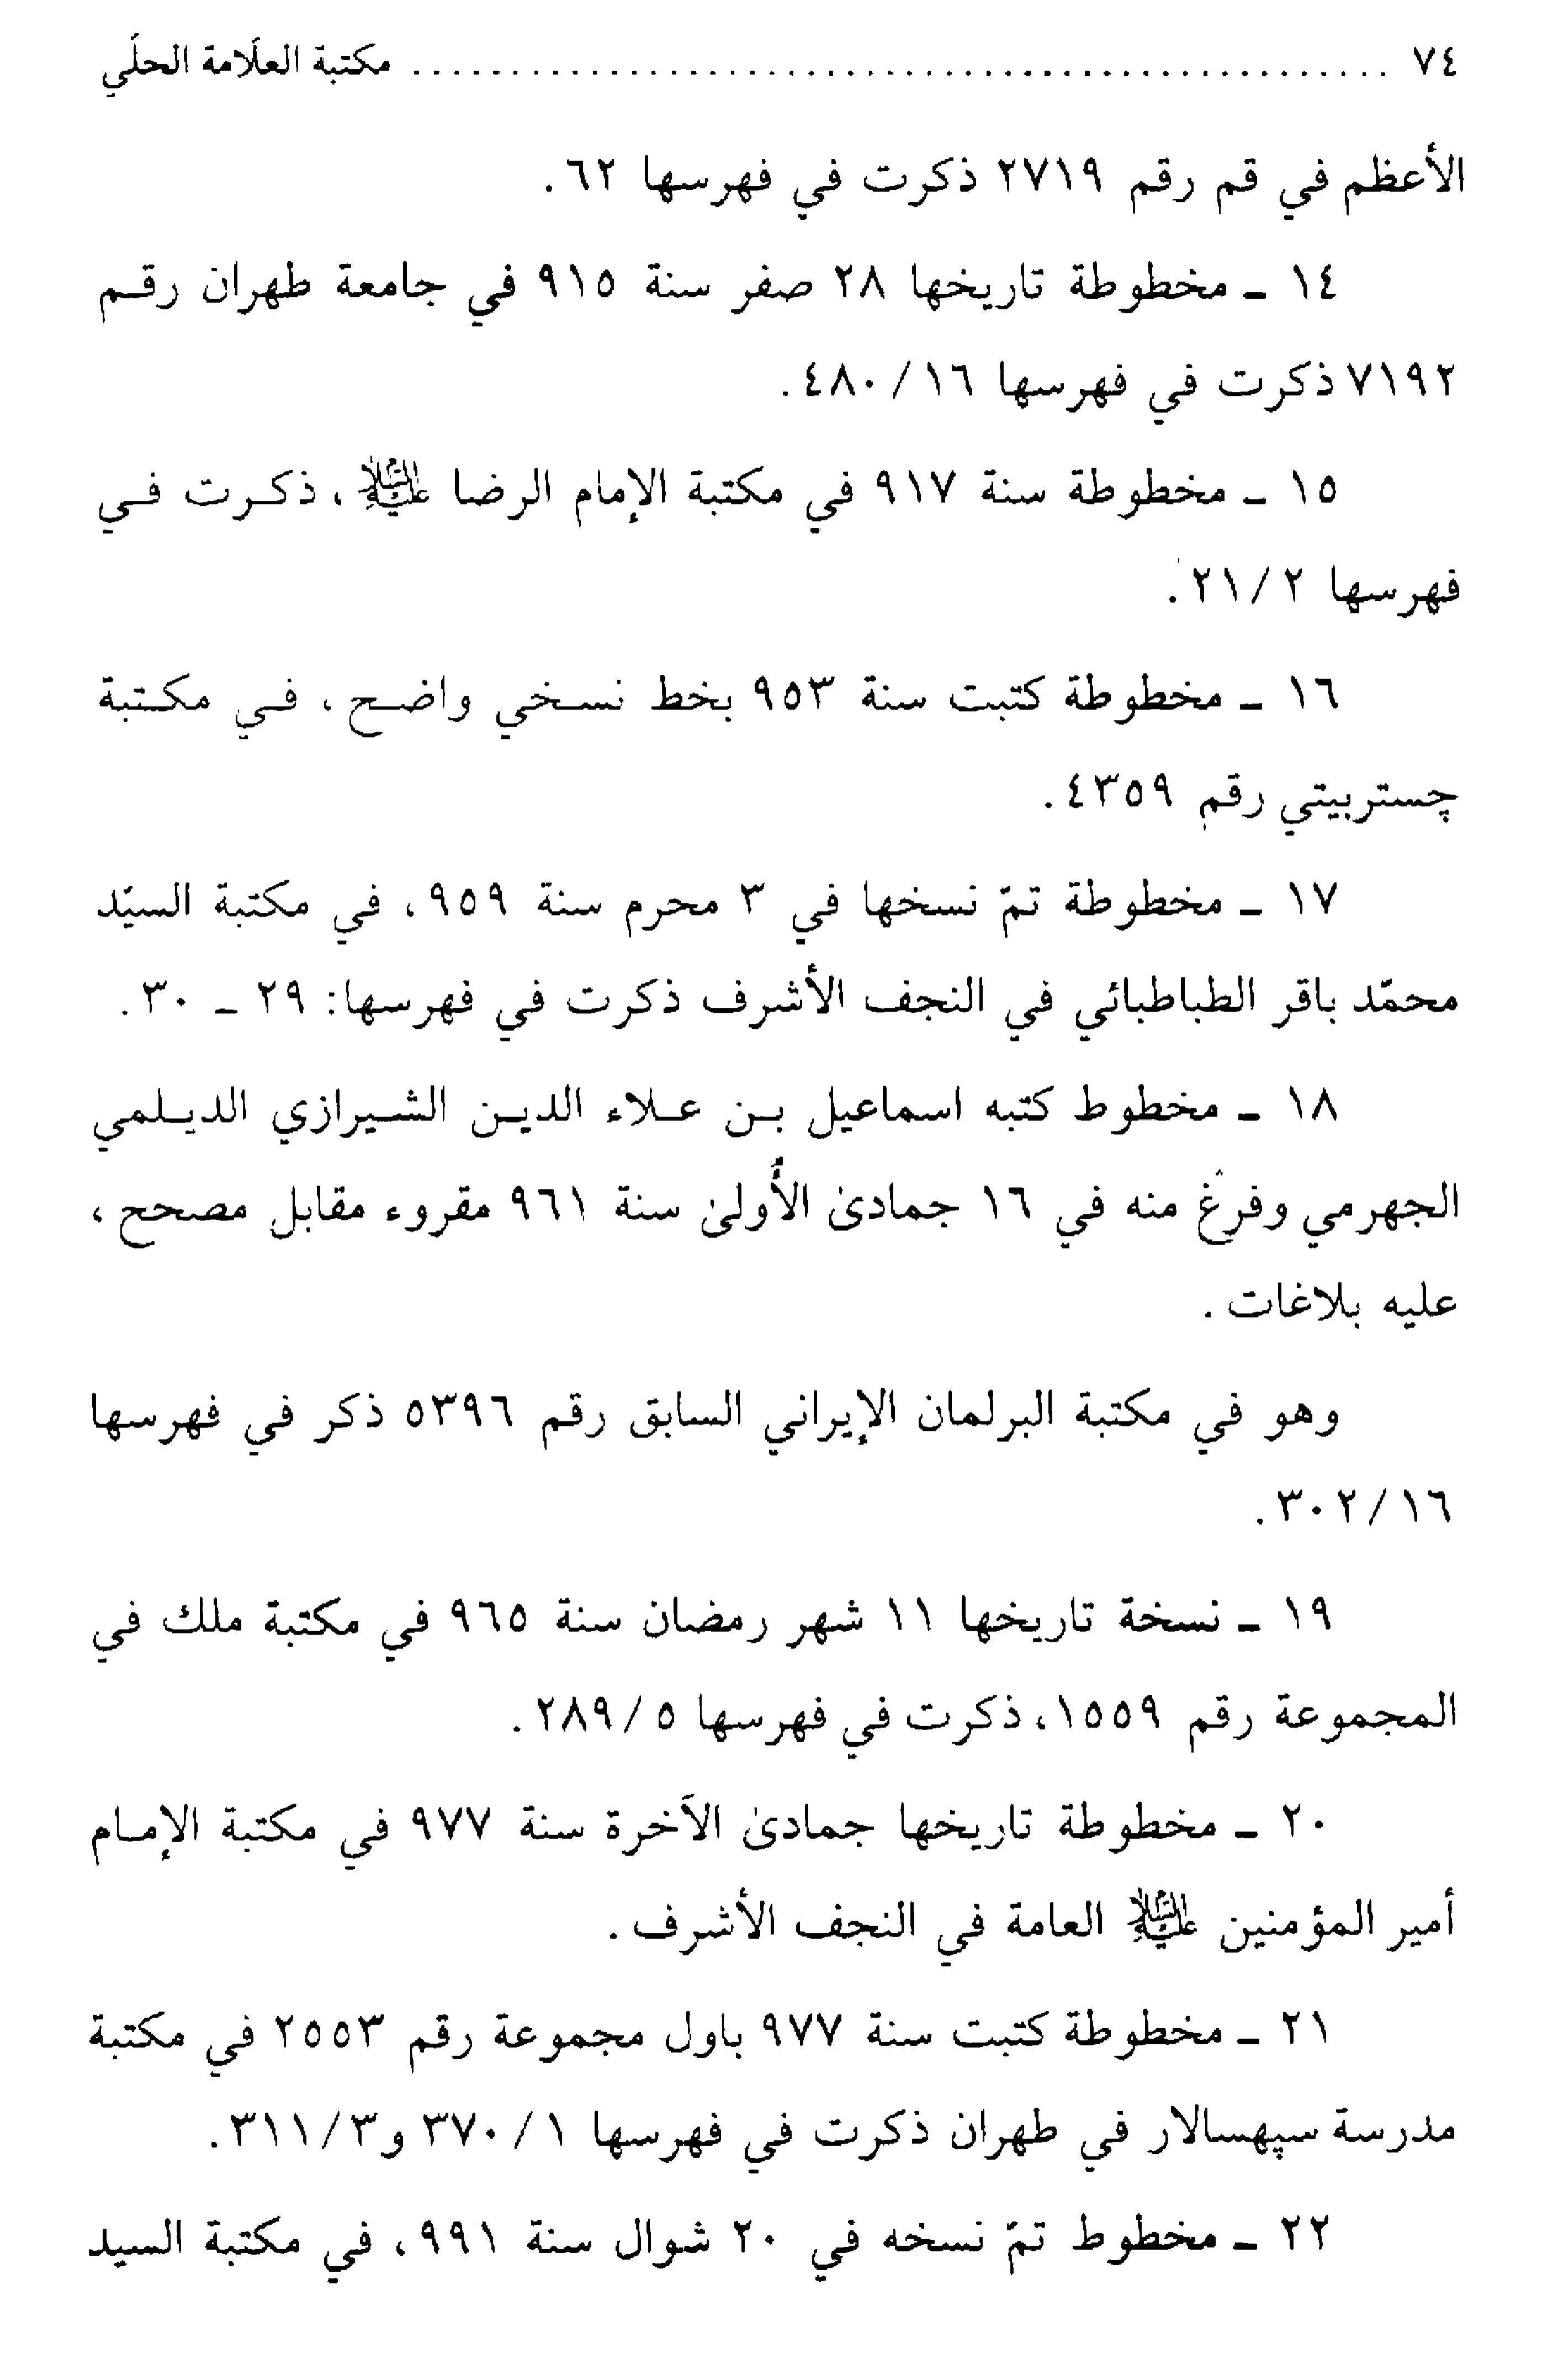 ٧٤ ................................................ مكتبة العلّامة الحلّي
الأعظم في قم رقم ٢٧١٩ ذكرت في فهرسها ٦٢.
١٤ ـ مخطوطة تاريخها ٢٨ صفر سنة ٩١٥ في جامعة طهران رقم
٧١٩٢ ذكرت في فهرسها ١٦/٤٨٠.
١٥ ـ مخطوطة سنة ٩١٧ في مكتبة الإمام الرضا عليه السلام، ذكرت في
فهرسها ٢/٢١.
١٦ ـ مخطوطة كتبت سنة ٩٥٣ بخط نسخي واضح، في مكتبة
چستربيتي رقم ٤٣٥٩.
١٧ ـ مخطوطة تمّ نسخها في ٣ محرم سنة ٩٥٩، في مكتبة السيّد
محمّد باقر الطباطبائي في النجف الأشرف ذكرت في فهرسها: ٢٩ ـ ٣٠.
١٨ ـ مخطوط كتبه اسماعيل بن علاء الدين الشيرازي الديلمي
الجهرمي وفرغ منه في ١٦ جمادىٰ الأُولىٰ سنة ٩٦١ مقروء مقابل مصحح،
عليه بلاغات.
وهو في مكتبة البرلمان الإيراني السابق رقم ٥٣٩٦ ذكر في فهرسها
١٦/٣٠٢.
١٩ ـ نسخة تاريخها ١١ شهر رمضان سنة ٩٦٥ في مكتبة ملك في
المجموعة رقم ١٥٥٩، ذكرت في فهرسها ٥/٢٨٩.
٢٠ ـ مخطوطة تاريخها جمادىٰ الآخرة سنة ٩٧٧ في مكتبة الإمام
أمير المؤمنين عليه السلام العامة في النجف الأشرف.
٢١ ـ مخطوطة كتبت سنة ٩٧٧ باول مجموعة رقم ٢٥٥٣ في مكتبة
مدرسة سپهسالار في طهران ذكرت في فهرسها ١/٣٧٠ و٣/٣١١.
٢٢ ـ مخطوط تمّ نسخه في ٢٠ شوال سنة ٩٩١، في مكتبة السيد